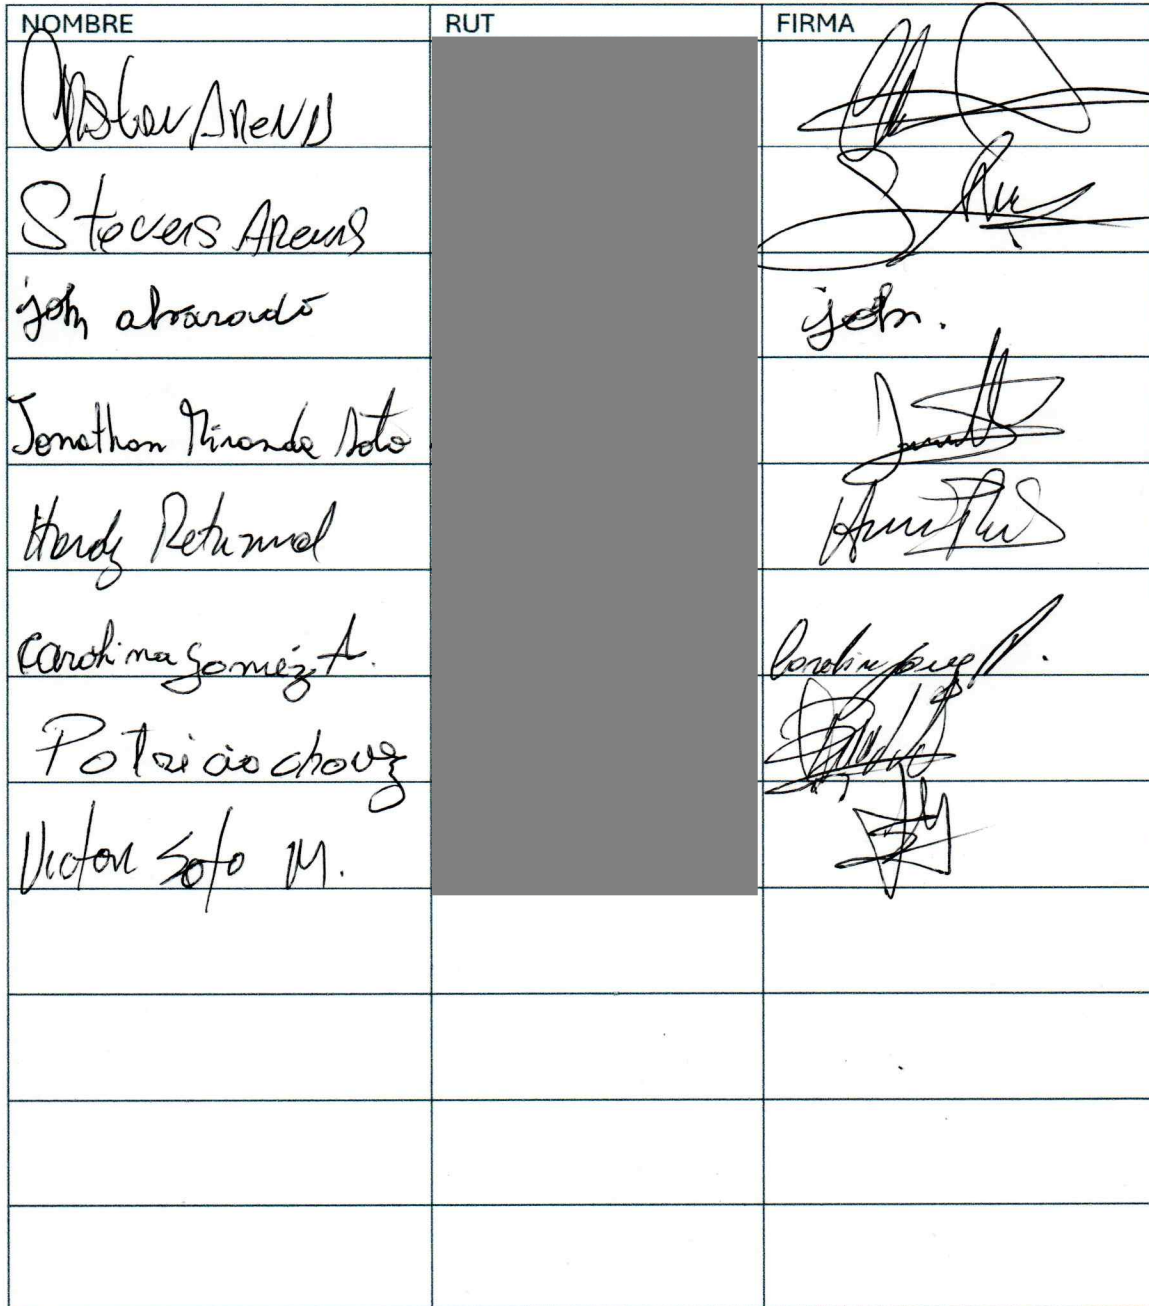 NOMBRE RUT FIRMA
Cristian Arenas
Stevens Arenas
john alvarado john.
Jonathan Miranda Soto
Hardy Retamal
Carolina Gomez A.
Patricio chavez
Victor Soto M.